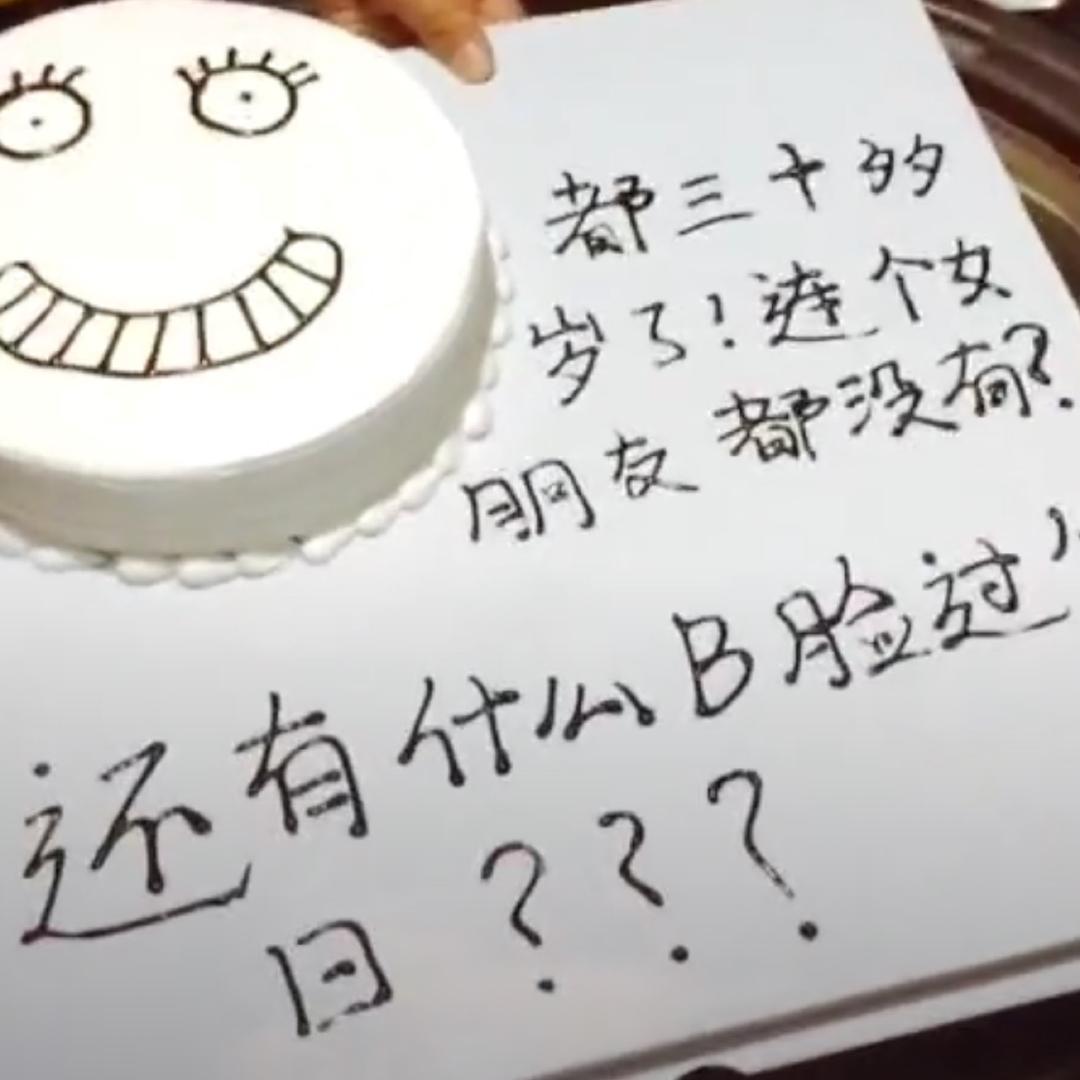 都三十多
岁了!连个女
朋友都没有?
还有什么B脸过
日???